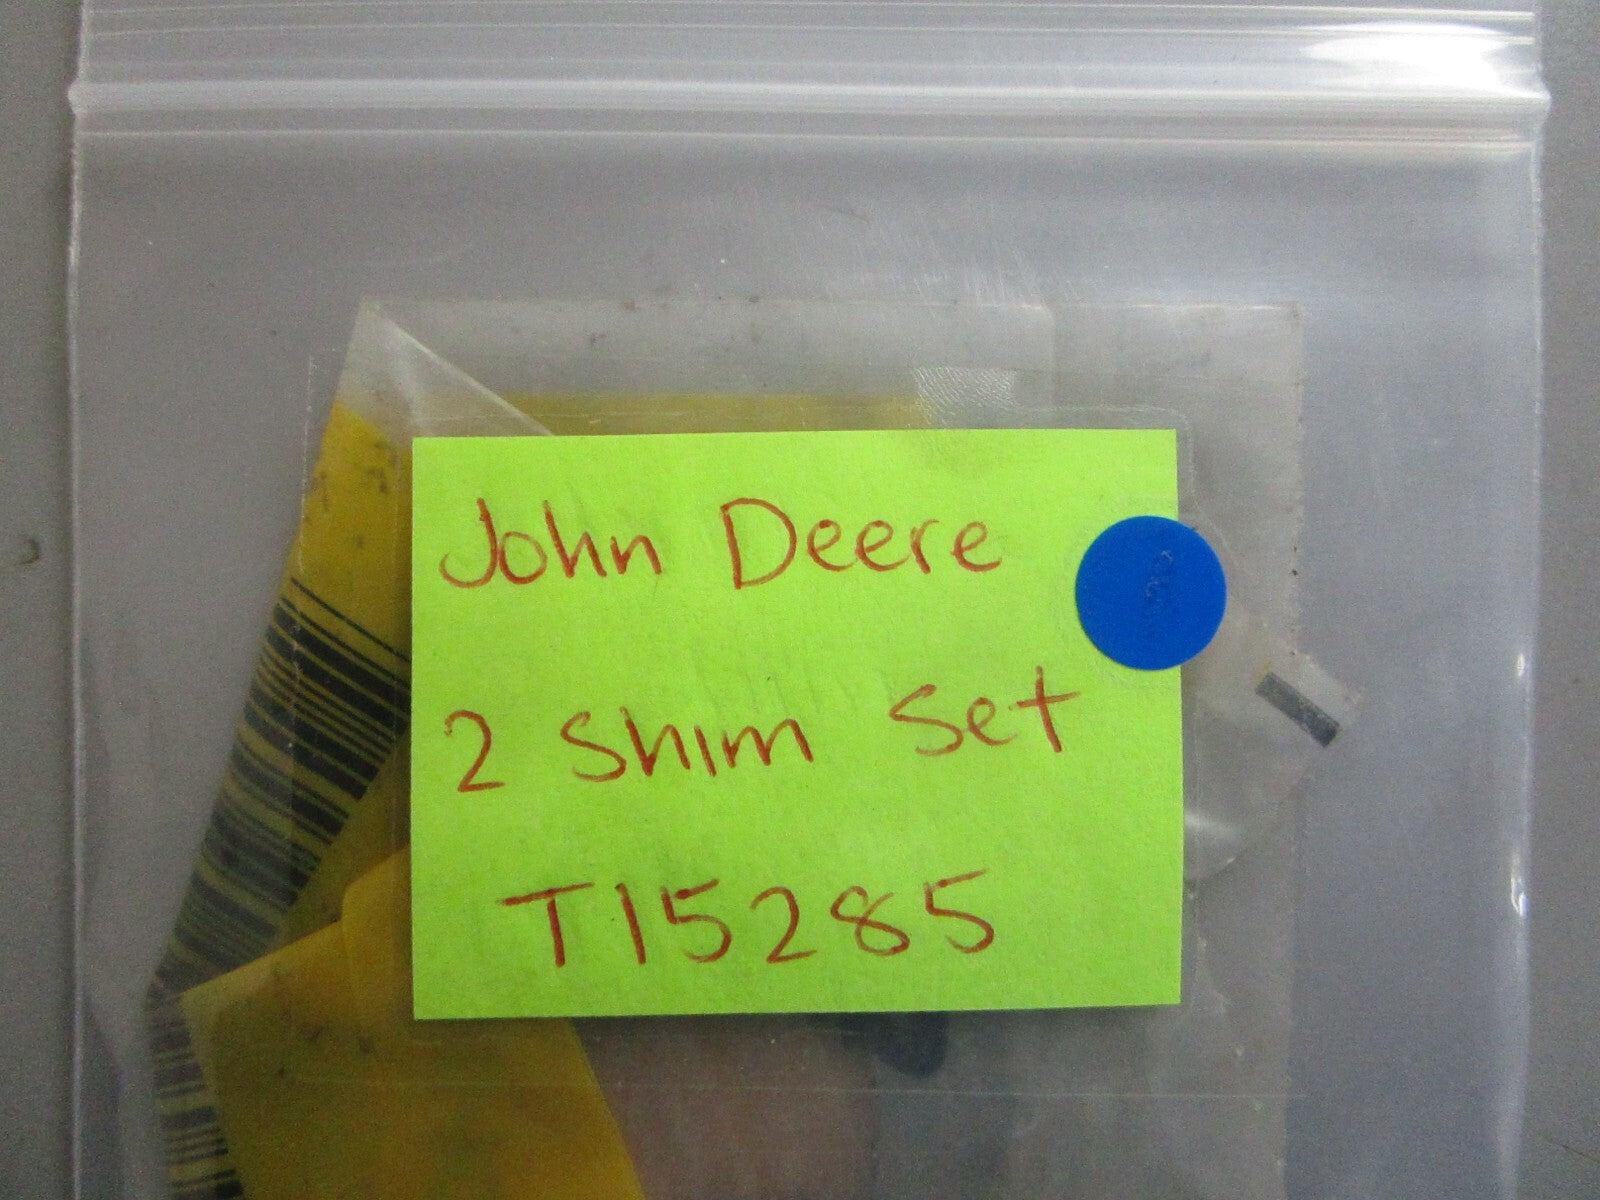 John Deere
2 Shim Set
T15285